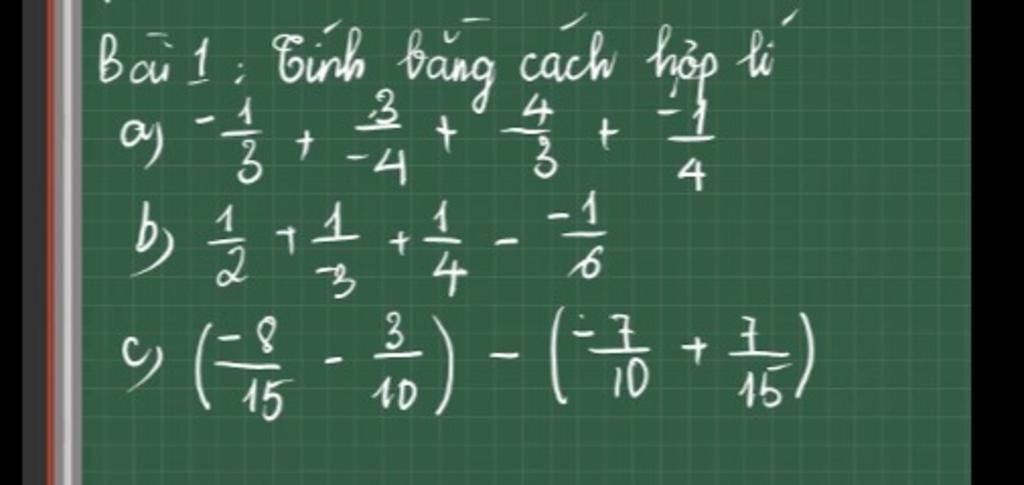 Bài 1: Tính bằng cách hợp lí
a) -1/3 + 3/-4 + 4/3 + -1/4
b) 1/2 + 1/-3 + 1/4 - -1/6
c) (-8/15 - 3/10) - (-7/10 + 7/15)